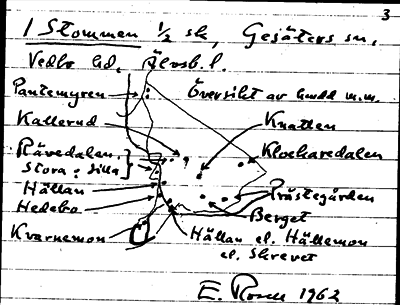 3
1 Stommen 1/2 sk, Gesäters sn,
Vedbo hd, Älvsb. l.
Pantemyren
Översikt av hmdd m.m.
Kallerud
?
Knatten
Klockaredalen
Rävedalen,
Stora o. Lilla
Hällan
Hedebo
Prästegården
Berget
Kvarnemon
Hällan el. Hällemon
el. Skrevet
E. Rosell 1962